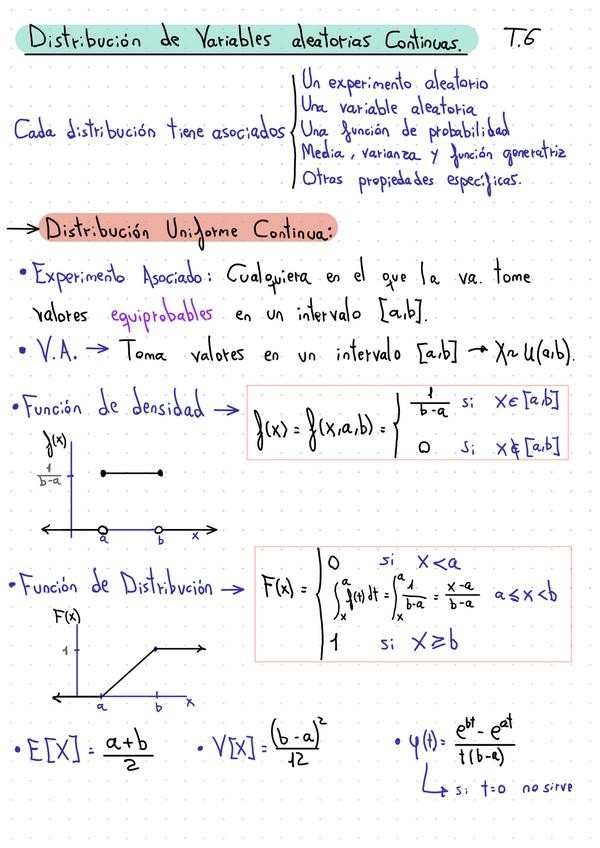 Distribución de Variables aleatorias Continuas. T.6
Un experimento aleatorio
Una variable aleatoria
Cada distribución tiene asociados { Una función de probabilidad
Media, varianza y función generatriz
Otras propiedades específicas.
→ Distribución Uniforme Continua:
• Experimento Asociado: Cualquiera en el que la va. tome
valores equiprobables en un intervalo [a,b].
• V.A. → Toma valores en un intervalo [a,b] → X~U(a,b).
• Función de densidad → f(x) = f(x,a,b) = { 1/(b-a) si X∈[a,b]
0 si X∉[a,b]
f(x)
1/(b-a)
a b x
• Función de Distribución → F(x) = { 0 si X<a
∫_x^a f(t)dt = ∫_x^a 1/(b-a) = (x-a)/(b-a) a≤x<b
1 si X≥b
F(x)
1
a b x
• E[X] = (a+b)/2 • V[X] = (b-a)²/12 • φ(t) = (e^bt - e^at)/(t(b-a))
↳ si t=0 no sirve